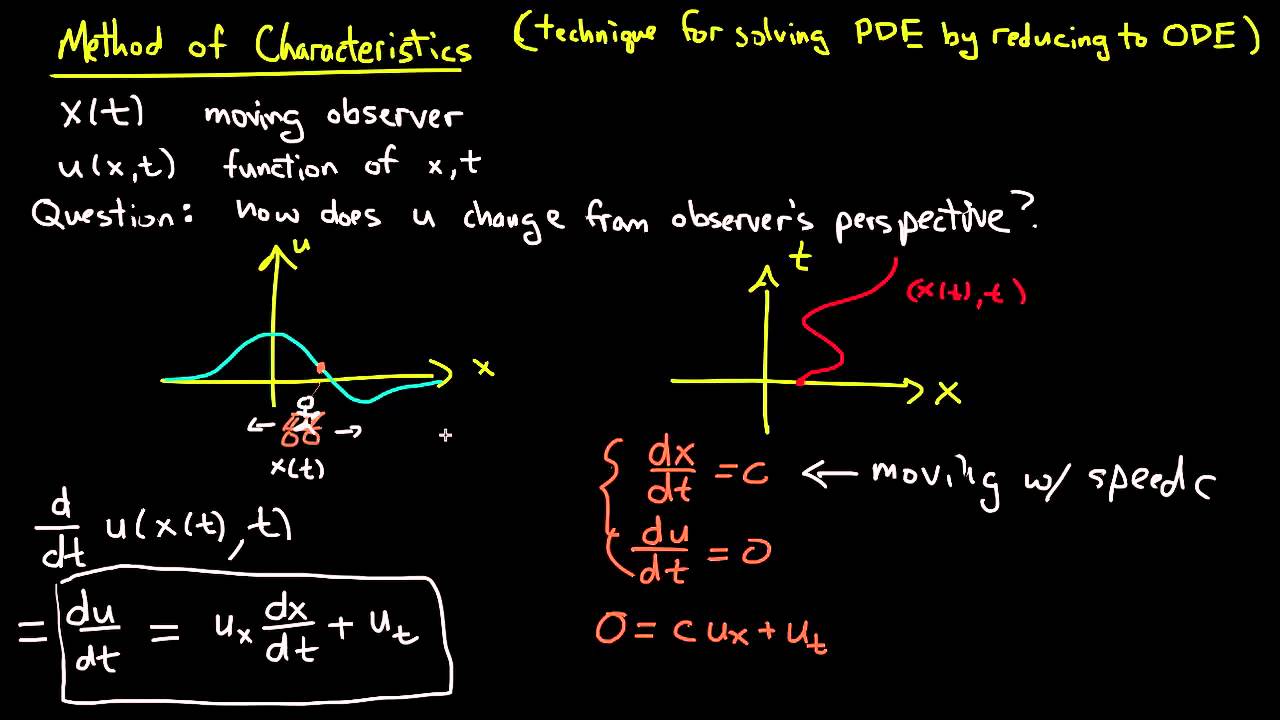 Method of Characteristics (technique for solving PDE by reducing to ODE)
x(t) moving observer
u(x,t) function of x,t
Question: how does u change from observer's perspective?
u
x
x(t)
t
(x(t),t)
x
d/dt u(x(t),t)
= du/dt = uₓ dx/dt + uₜ
{ dx/dt = c ← moving w/ speed c
du/dt = 0
0 = c uₓ + uₜ